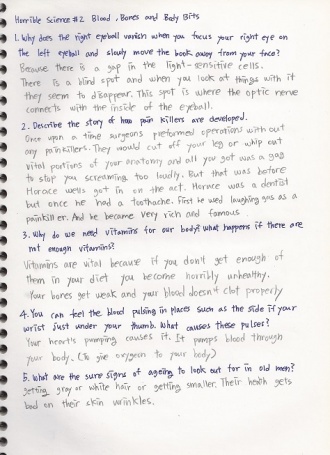 Horrible Science #2 Blood, Bones and Body Bits
1. Why does the right eyeball vanish when you focus your right eye on
the left eyeball and slowly move the book away from your face?
Because there is a gap in the light-sensitive cells.
There is a blind spot and when you look at things with it
they seem to disappear. This spot is where the optic nerve
connects with the inside of the eyeball.
2. Describe the story of how pain killers are developed.
Once upon a time surgeons preformed operations with out
any painkillers. They would cut off your leg or whip out
vital portions of your anatomy and all you got was a gag
to stop you screaming too loudly. But that was before
Horace wells got in on the act. Horace was a dentist
but once he had a toothache. First he used laughing gas as a
painkiller. And he became very rich and famous.
3. Why do we need vitamins for our body? what happens if there are
not enough vitamins?
Vitamins are vital because if you don't get enough of
them in your diet you become horribly unhealthy.
Your bones get weak and your blood doesn't clot properly
4. You can feel the blood pulsing in places such as the side if your
wrist just under your thumb. What causes these pulses?
Your heart's pumping causes it. It pumps blood through
your body. (To give oxygen to your body)
5. What are the sure signs of ageing to look out for in old men?
Getting gray or white hair or getting smaller. Their health gets
bad on their skin wrinkles.